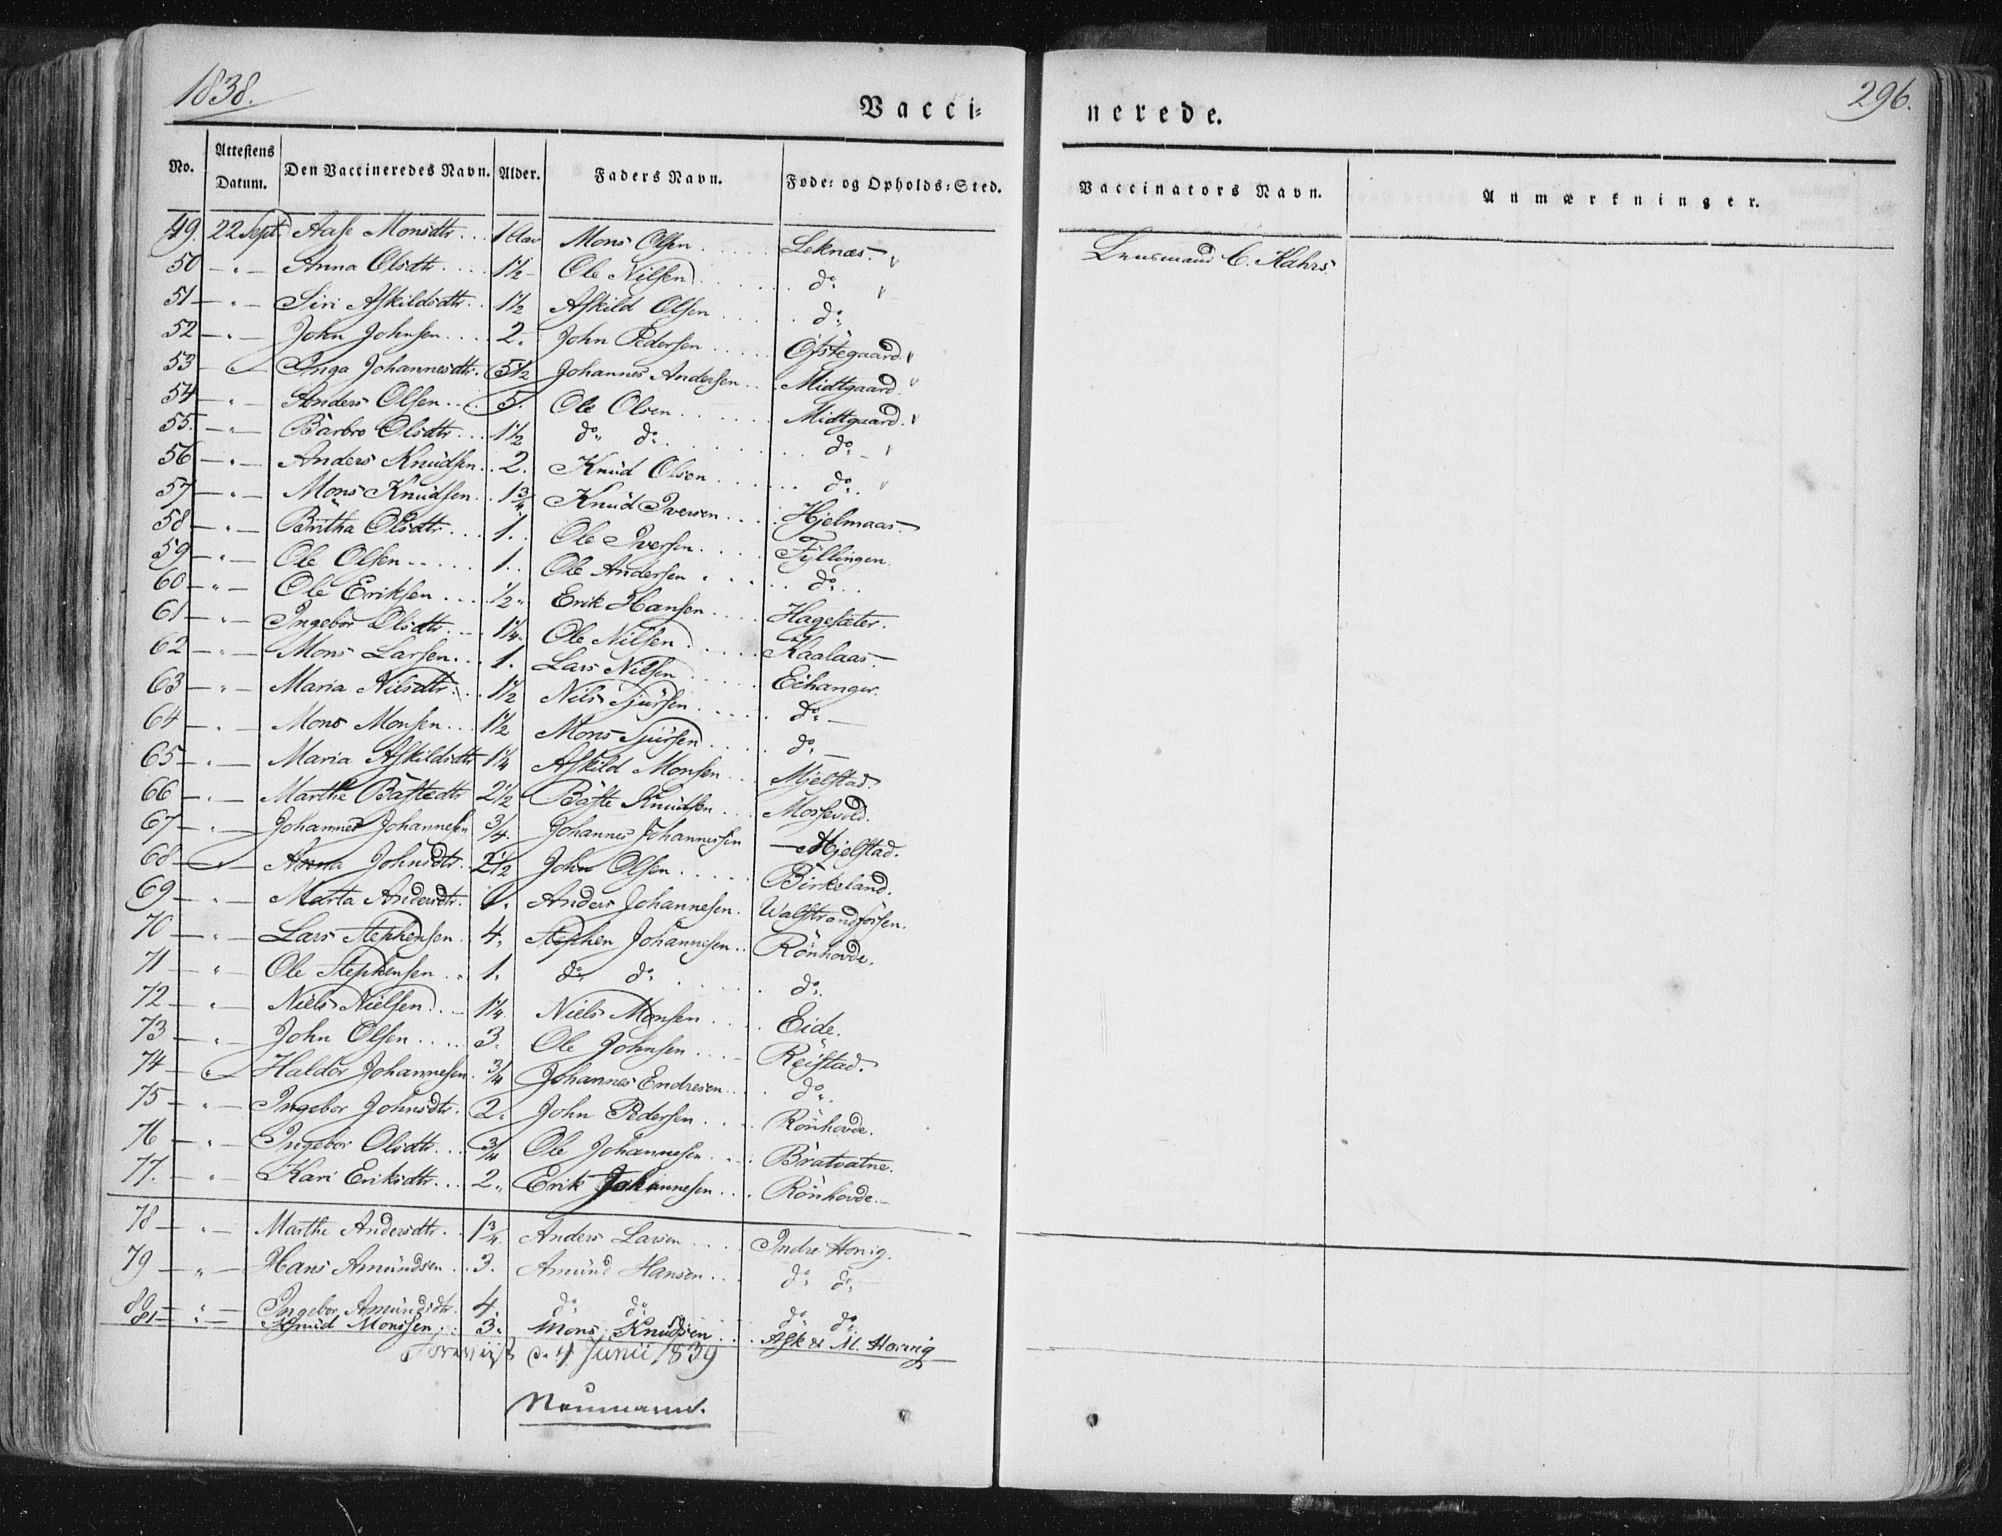 1838.
296.
Vacci-
nerede.
No. Attestens Datum. Den Vaccineredes Navn. Alder. Faders Navn. Føde- og Opholds-Sted. Vaccinators Navn. Anmærkninger.
49. 22 Sept. Aase Monsdtr. 1 Aar Mons Olsen Leknæs Lensmand C. Kahrs.
50 — " — Anna Olsdtr. 1½ Ole Nilsen do
51 — " — Siri Askildsdtr. 1½ Askild Olsen do
52 — " — John Johnsen 2. John Pedersen Ofstegaard
53 — " — Inga Johannesdtr. 5½ Johannes Andersen Midtgaard
54 — " — Anders Olsen 5. Ole Olsen Midtgaard
55. — " — Barbro Olsdtr. 1½ do do do
56 — " — Anders Knudsen 2. Knud Olsen do
57 — " — Mons Knudsen 1¾ Knud Iversen Hjelmaas
58 — " — Britha Olsdtr 1. Ole Iversen Fyllingen
59 — " — Ole Olsen 1. Ole Andersen do
60 — " — Ole Eriksen ½ Erik Hansen Hagesæter.
61 — " — Ingebor Olsdtr. 1¼ Ole Nilsen Kaalaas
62 — " — Mons Larsen 1. Lars Nilsen Echanger
63 — " — Maria Nilsdtr. 1½ Nils Sjursen do
64 — " — Mons Monsen 1½ Mons Sjursen do
65 — " — Maria Askildsdtr 1¼ Askild Monsen Mjelstad.
66 — " — Marthe Bastedtr 2½ Baste Knudsen Morsevold.
67 — " — Johannes Johannesen ¾ Johannes Johannessen Mjelstad.
68 — " — Anna Johnsdtr. 2½ John Olsen Birkeland.
69 — " — Marta Andersdtr. 1. Anders Johannesen. Walstrandfossen.
70 — " — Lars Stephensen 4. Stephen Johannesen Rönhovde.
71 — " — Ole Stephensen 1. do do do
72 — " — Niels Nielsen 1¼ Niels Monsen Eide.
73 — " — John Olsen 3. Ole Johnsen Reistad.
74 — " — Haldor Johannesen ¾ Johannes Endresen do
75 — " — Ingebor Johnsdtr. 2. John Pedersen Rönhovde.
76 — " — Ingebor Olsdtr. ¾ Ole Johannesen Bratvatne.
77. — " — Kari Eriksdtr. 2. Erik Johannesen Rönhovde.
78 — " — Marthe Andersdtr. 1¾ Anders Larsen Indre Honig.
79 — " — Hans Amundsen 3. Amund Hansen do do
80 — " — Ingebor Amundsdtr. 4. do do do do
81 — " — Knud Monssen 3. Mons Knudsen Ask M. Horvig
Foreviist d. 4 Junii 1839
Neumann.